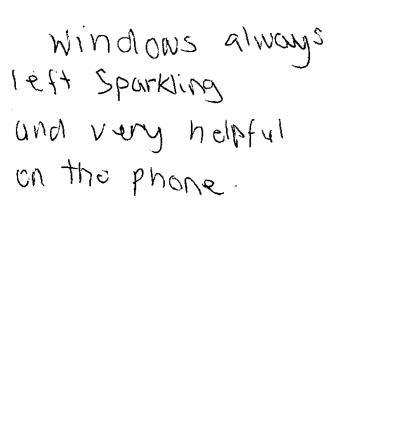 Windows always
left Sparkling
and very helpful
on the phone.